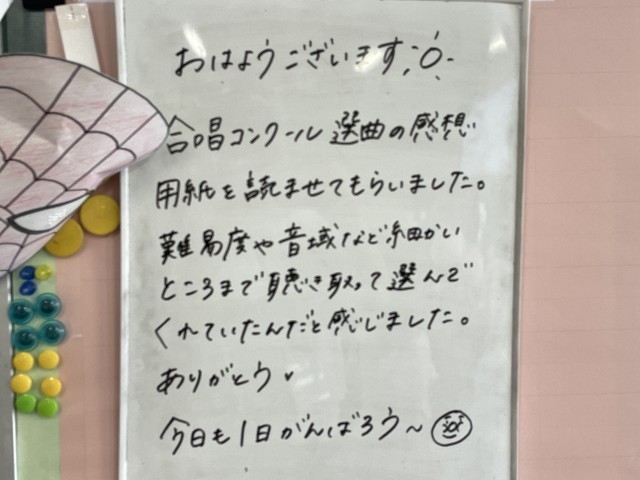 おはようございます
合唱コンクール 選曲の感想
用紙を読ませてもらいました。
難易度や音域など細かい
ところまで聴き取って選んで
くれていたんだと感じました。
ありがとう
今日も1日がんばろう〜